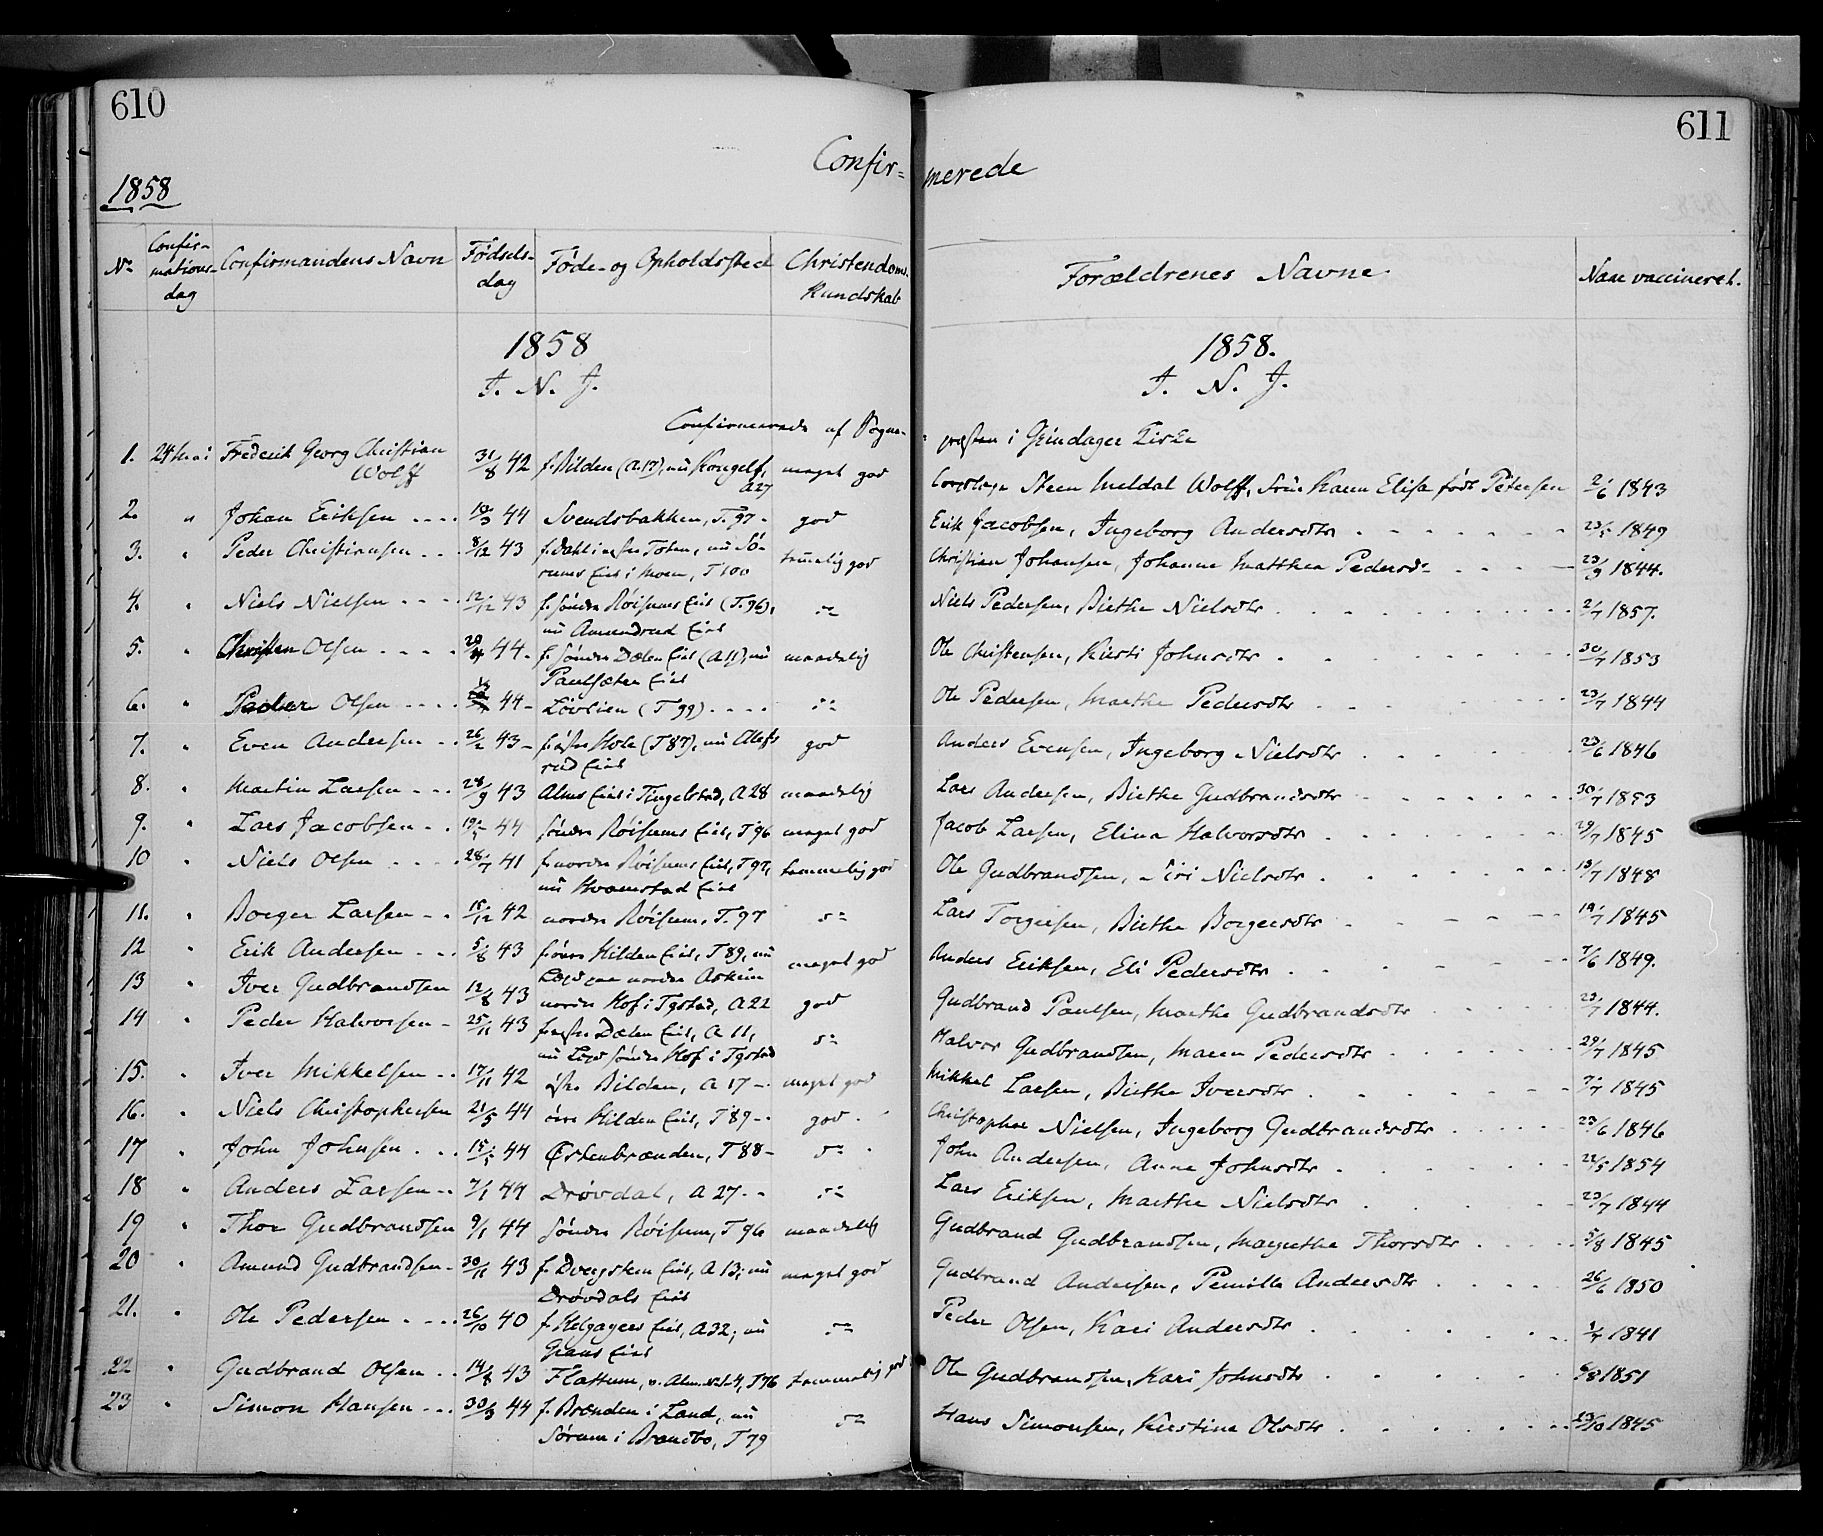 610
611
Confir= merede
1858
No
Confir-
mations-
dag
Confirmandens Navn
Fødsels-
dag
Føde- og Opholdssted
Christendoms-
Kundskab
Forældrenes Navne.
Naar vaccineret.
1858
1858.
I. N. J.
I. N. J.
Confirmerede af Sogne- præsten i Grindager Kirke
1. 24 Mai Frederik Georg Christian
Wolff 31/8 42 f. Bilden (A.17), nu Kongelf, meget god
A27
Steen Meldal Wolff, Karen Elisa født Petersen 2/6 1843
2. " Johan Eriksen 44 Svendsbakken, T. 97 god Erik Jacobsen, Ingeborg Andersdtr 1849
3. " Peder Christiansen 8/12 43 f. Dahl i østre Toten, nu Sø- temmelig god Christian Johansen, Johanne Matthea Pedersdr 23/9 1844.
rums Eie i Moen, T 100
4. " Niels Nielsen 12/12 43 f. søndre Røisums Eie (T. 96), do Niels Pedersen, Birthe Nielsdtr 2/7 1857.
nu Amundrud Eie
5. " Christen Olsen 44 f. søndre Dælen Eie (A 11), nu maadelig Ole Christensen, Kirsti Johnsdtr 30/7 1853
Paulsæter Eie
6. " Peder Olsen 44 Løvlien (T 99) do Ole Pedersen, Marthe Pedersdtr 23/7 1844
7. " Even Andersen 43 f. østre Hole (T 87), nu Alefs god Anders Evensen, Ingeborg Nielsdtr 23/6 1846
rud Eie
8. " Martin Larsen 28/9 43 Alms Eie i Tingelstad, A 28 maadelig Lars Andersen, Birthe Gudbrandsdtr 30/7 1853
9. " Lars Jacobsen 44 søndre Røisums Eie, T 96 meget god Jacob Larsen, Elina Halvorsdtr 29/7 1845
10 " Niels Olsen 28/7 41 f. nordre Røisums Eie, T 97, temmelig god Ole Gudbrandsen, Siri Nielsdtr 13/7 1848
nu Hvamstad Eie
11. " Borger Larsen 15/12 42 nordre Røisum, T. 97 do Lars Torgersen, Birthe Borgersdtr 19/7 1845
12 " Erik Andersen 5/8 43 f. øvre Hilden Eie, T 89, nu meget god Anders Eriksen, Eli Pedersdtr 7/6 1849.
Logd paa nordre Askim
13 Iver Gudbrandsen 12/8 43 nordre Hof i Tgstad, A 22 god Gudbrand Paulsen, Marthe Gudbrandsdtr 23/7 1844.
14 " Peder Halvorsen 25/11 43 f. østre Dælen Eie, A 11, do Halvor Gudbrandsen, Maren Pedersdtr 29/7 1845
nu Logd søndre Hof i Tgstad
15. " Iver Mikkelsen 17/11 42 østre Bilden, A 17 meget god Mikkel Larsen, Birthe Iversdtr 7/7 1845
16. " Niels Christophersen 21/5 44 øvre Hilden Eie, T 89 god Christopher Nielsen, Ingeborg Gudbrandsdtr 23/6 1846
17 " John Johnsen 44 Østenbrænden, T 88 do John Andersen, Anne Johnsdtr 1854
18 " Anders Larsen 7/1 44 Drøvdal, A 27 do Lars Eriksen, Marthe Nielsdtr 23/7 1844
19 " Thor Gudbrandsen 9/1 44 søndre Røisum, T 96 maadelig Gudbrand Gudbrandsen, Margrethe Thorsdtr 5/8 1845
20 " Amund Gudbrandsen 30/11 43 f. Dvergsten Eie, A 13; nu meget god Gudbrand Andersen, Pernille Andersdtr 26/6 1850
Drøvdals Eie
21. " Ole Pedersen 26/10 40 f. Helgagers Eie, A 32; nu do Peder Olsen, Kari Andersdtr 1/7 1841
Grans Eie
22 " Gudbrand Olsen 14/8 43 Flattum, T 76 temmelig god Ole Gudbrandsen, Kari Johnsdtr 1851
23 " Simon Hansen 30/3 44 f. Brænden i Land, nu do Hans Simonsen, Kirstine Olsdtr 1845
Sørum i Brandbo, T 79